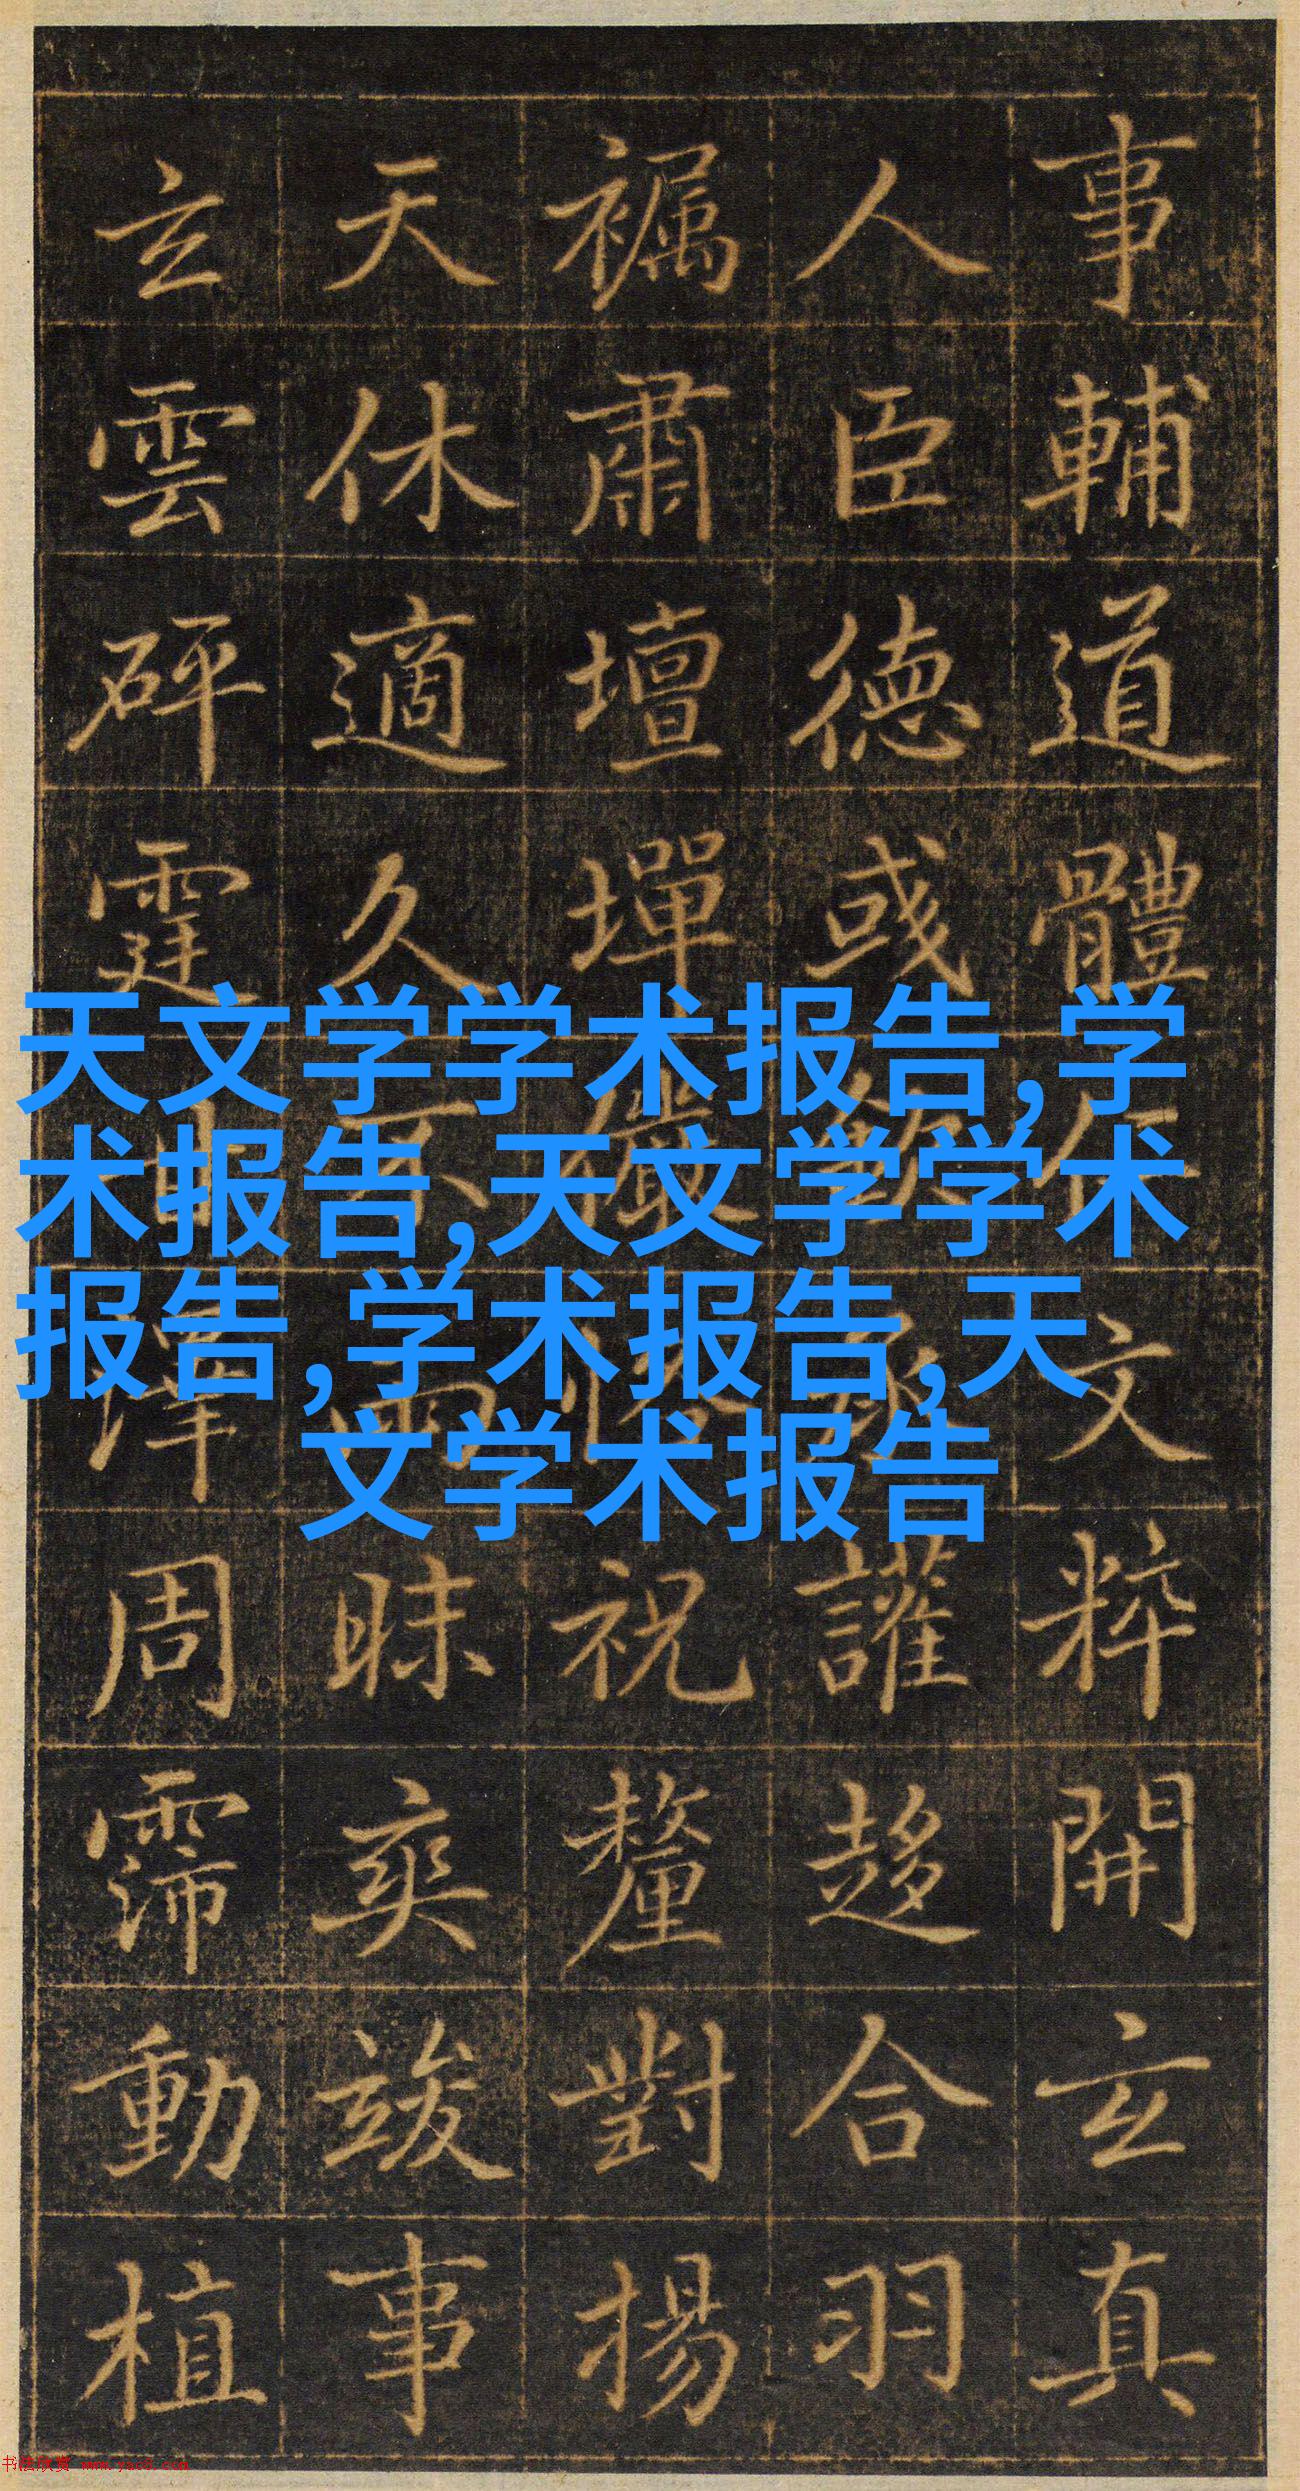 事輔道體文粹開玄真
人臣德彧讙趍合羽
肅壇墠祝釐對揚
天休適久不雨昧爽竣事
玄雲砰霆甘澤周霈動植
天文学学术报告,学
术报告,天文学学术
报告,学术报告,天
文学术报告
书法欣赏 www.yac8.com